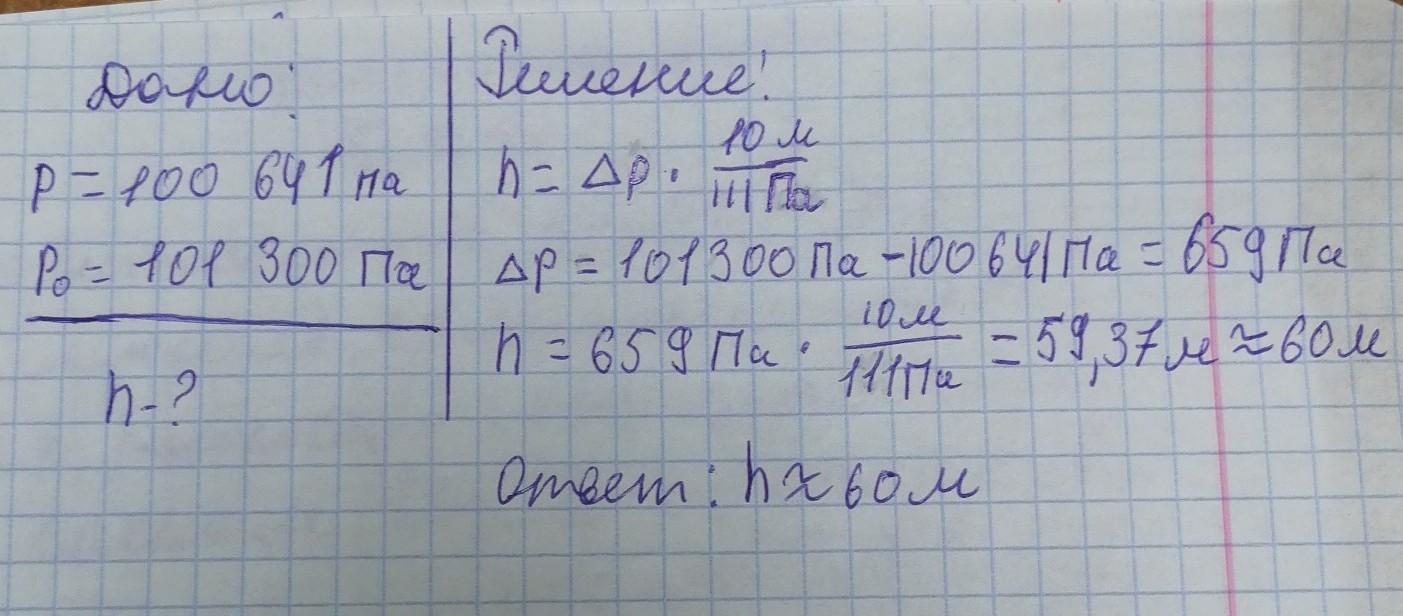 Дано:
P = 100 641 па
P₀ = 101 300 Па
h - ?
Решение:
h = Δp · 10 м / 111 Па
Δp = 101300 Па - 100641 Па = 659 Па
h = 659 Па · 10 м / 111 Па = 59,37 м ≈ 60 м
Ответ: h ≈ 60 м